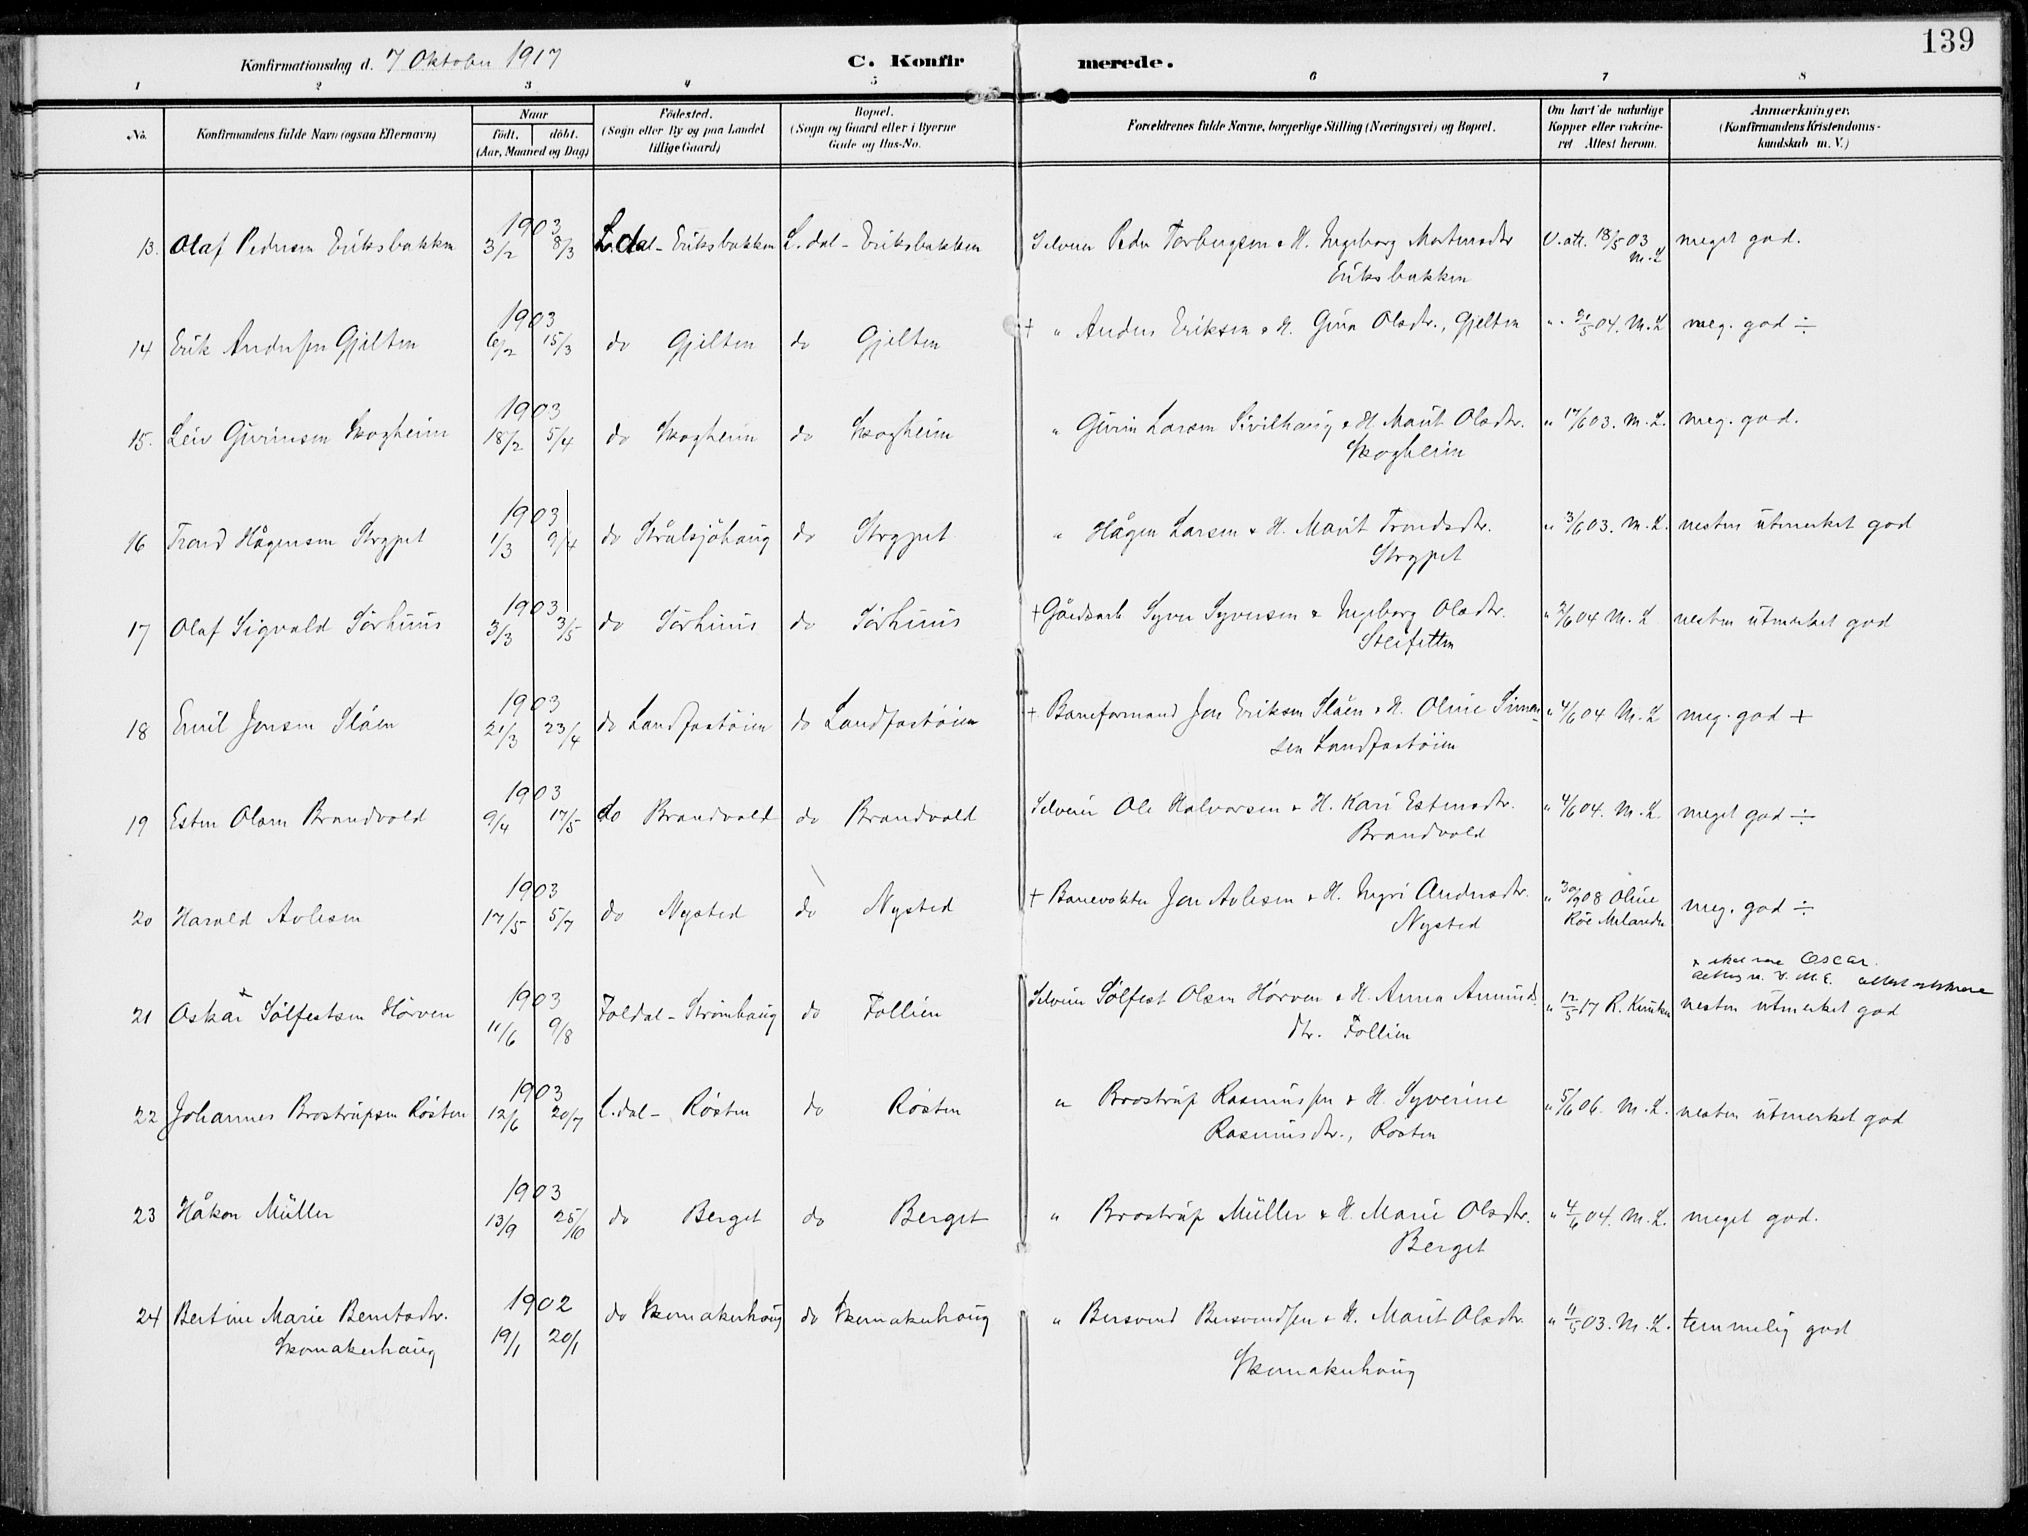 139
Konfirmationsdag d. 7 Oktober 1917 C. Konfirmerede.
1 2 3 4 5 6 7 8
No. Konfirmandens fulde Navn (ogsaa Efternavn) Naar født. døbt. (Aar, Maaned og Dag) Fødested. (Sogn eller By og paa Landet tillige Gaard) Bopæl. (Sogn og Gaard eller i Byerne Gade og Hus-No. Forældrenes fulde Navne, borgerlige Stilling (Næringsvei) og Bopæl. Om havt de naturlige Kopper eller vakcineret Attest herom. Anmærkninger. (Konfirmandens Kristendomskundskab m. V.)
13. Olaf Pedersen Eriksbakken 1903 3/2 8/3 L.dal - Eriksbakken L.dal - Eriksbakken Selveier Peder Torbergsen & H. Ingeborg Mortensdtr V. att. 18/5 03 M.L meget god.
Eriksbakken
14 Erik Andersen Gjelten 1903 6/2 15/3 do Gjelten do Gjelten + " Anders Eriksen & H. Gina Olsdtr., Gjelten " 21/5 04. M.L meg. god ÷
15. Leiv Gurinsen Skogheim 1903 18/2 5/4 do Skogheim do Skogheim " Gurin Larsen Sivilhaug & H. Marit Olsdtr. " 17/6 03. M.L. meg. god.
Skogheim
16 Trond Hågensen Strypet 1903 1/3 9/4 do Strålsjøhaug do Strypet " Hågen Larsen & H. Marit Trondsdtr. " 3/6 03. M.L. nesten utmerket god
Strypet
17 Olaf Sigvald Sørhuus 1903 3/3 3/5 do Sørhuus do Sørhuus + Gårdsarb Syver Syversen & Ingeborg Olsdtr. " 2/6 04 M.L nesten utmerket god
Steifetten
18 Emil Jonsen Slåen 1903 21/3 23/4 do Landfastøien do Landfastøien + Baneformand Jon Eriksen Slåen & H. Oline Simen- " 4/6 04 M.L meg. god +
sen Landfastøien
19 Esten Olsen Brandvold 1903 9/4 17/5 do Brandvold do Brandvold Selveier Ole Halvorsen & H. Kari Estensdtr. " 4/6 04. M.L. meget god ÷
Brandvold
20 Harald Avlesen 1903 17/5 5/7 do Nysted do Nysted + Banevokter Jon Avlesen & H. Ingri Andersdtr. " 30/9 08 Oline Røe Melander meg. god ÷
Nysted
x skal være Oscar.
21 Oskar x Sølfestsen Hørven 1903 11/6 9/8 Foldal - Strømhaug do Follien Selveier Sølfest Olsen Hørven & H. Anna Amunds- " 12/5 17 R. nesten utmerket god
dtr. Follien
22 Johannes Brostrupsen Røsten 1903 12/6 20/7 L.dal - Røsten do Røsten " Brostrup Rasmussen & H. Syverine " 5/6 06. M.L. nesten utmerket god
Rasmusdtr., Røsten
23 Håkon Müller 1903 13/9 25/10 do Berget do Berget " Brostrup Müller & H. Marie Olsdtr. " 4/6 04. M.L. meget god.
Berget
24 Bertine Marie Berntsdtr. 1902 19/1 20/1 do Skomakerhaug do Skomakerhaug " Bersvend Bersvendsen & H. Marit Olsdtr. " 11/5 03. M.L. temmelig god
Skomakerhaug Skomakerhaug